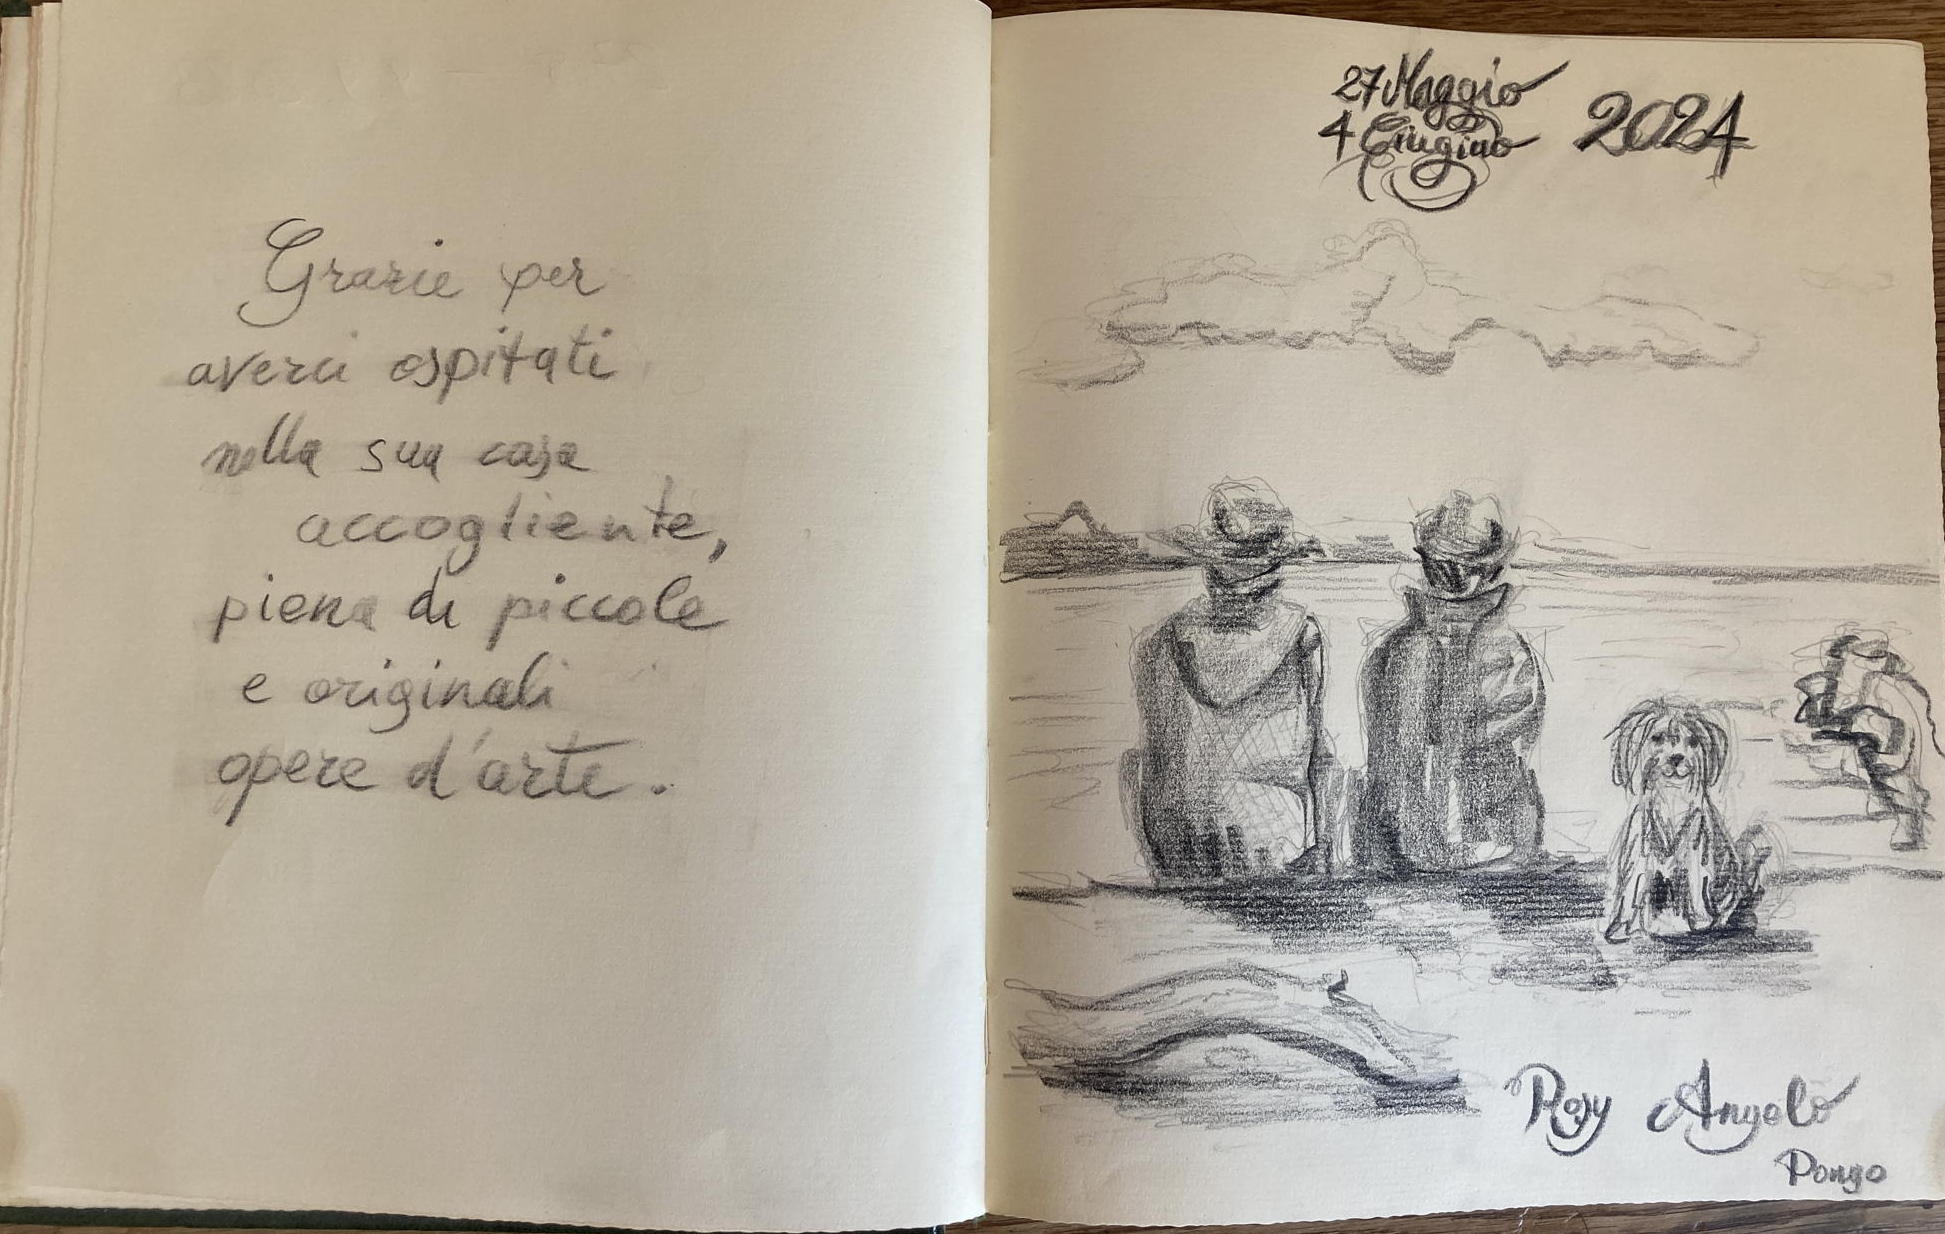 Grazie per
averci ospitati
nella sua casa
accogliente,
piena di piccole
e originali
opere d'arte.
27 Maggio
4 Giugino 2024
Rosy Angelo
Pongo